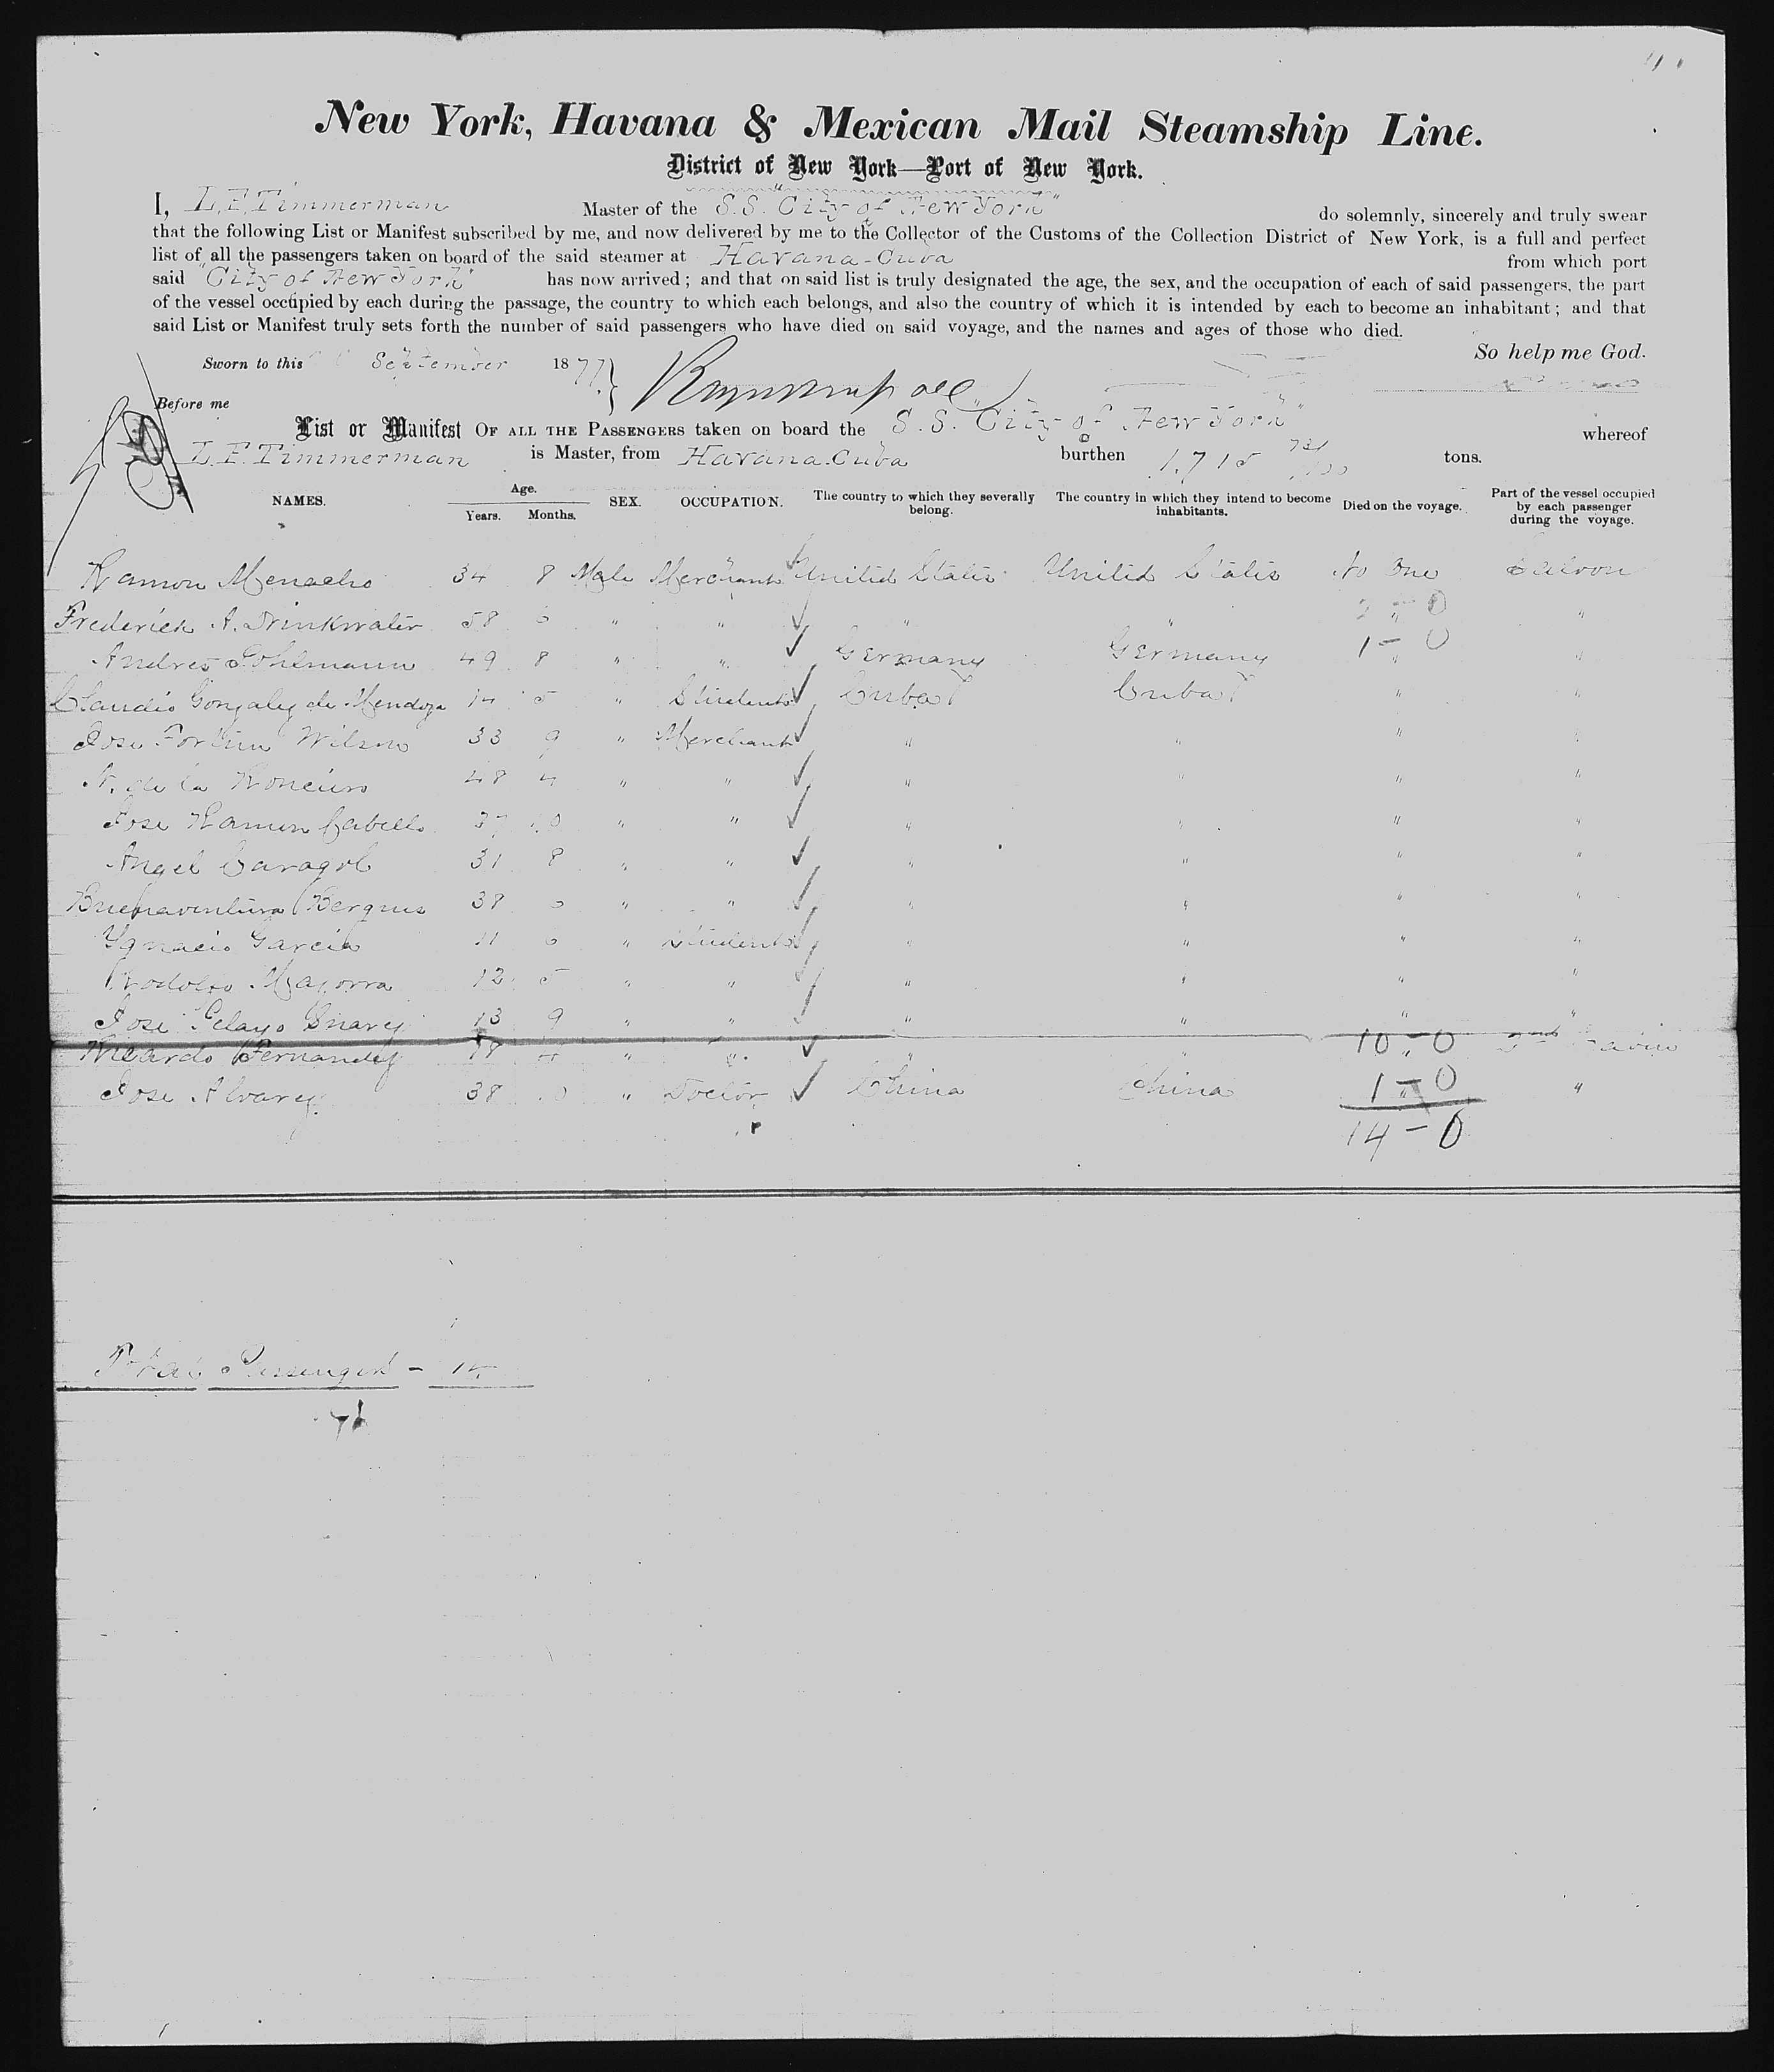 New York, Havana & Mexican Mail Steamship Line.
District of New York—Port of New York.
I, L. F. Timmerman Master of the S.S. "City of New York" do solemnly, sincerely and truly swear
that the following List or Manifest subscribed by me, and now delivered by me to the Collector of the Customs of the Collection District of New York, is a full and perfect
list of all the passengers taken on board of the said steamer at Havana-Cuba from which port
said "City of New York" has now arrived; and that on said list is truly designated the age, the sex, and the occupation of each of said passengers, the part
of the vessel occupied by each during the passage, the country to which each belongs, and also the country of which it is intended by each to become an inhabitant; and that
said List or Manifest truly sets forth the number of said passengers who have died on said voyage, and the names and ages of those who died.
So help me God.
Sworn to this September 1877
Before me
List or Manifest OF ALL THE PASSENGERS taken on board the S.S. "City of New York" whereof
L. F. Timmerman is Master, from Havana-Cuba burthen 1,715 tons.
NAMES. Age. Years. Months. SEX. OCCUPATION. The country to which they severally belong. The country in which they intend to become inhabitants. Died on the voyage. Part of the vessel occupied by each passenger during the voyage.
Ramon Menacho 34 8 Male Merchant United States United States No One Saloon
Frederick A. Drinkwater 58 " " " " " 2-0 "
Andres Pohlmann 49 8 " " Germany Germany 1-0 " "
Claudio Gonzalez de Mendoza 14 5 " Student Cuba Cuba " "
Jose Fortun Wilson 33 9 " Merchant " " " "
N. de la 48 4 " " " " " "
Jose Ramon Cabello 37 10 " " " " " "
Angel Caragol 31 8 " " " " " "
Buenaventura 38 " " " " " "
Ygnacio Garcia 11 " Student " " " "
Rodolfo Mayorra 12 5 " " " " " "
Jose Pelayo Suarez 13 9 " " " " " "
Ricardo Fernandez 18 " " " " 10-0 2nd Cabin
Jose Alvarez 38 10 " Doctor China China 1-0 "
14-0
Total Passengers - 14